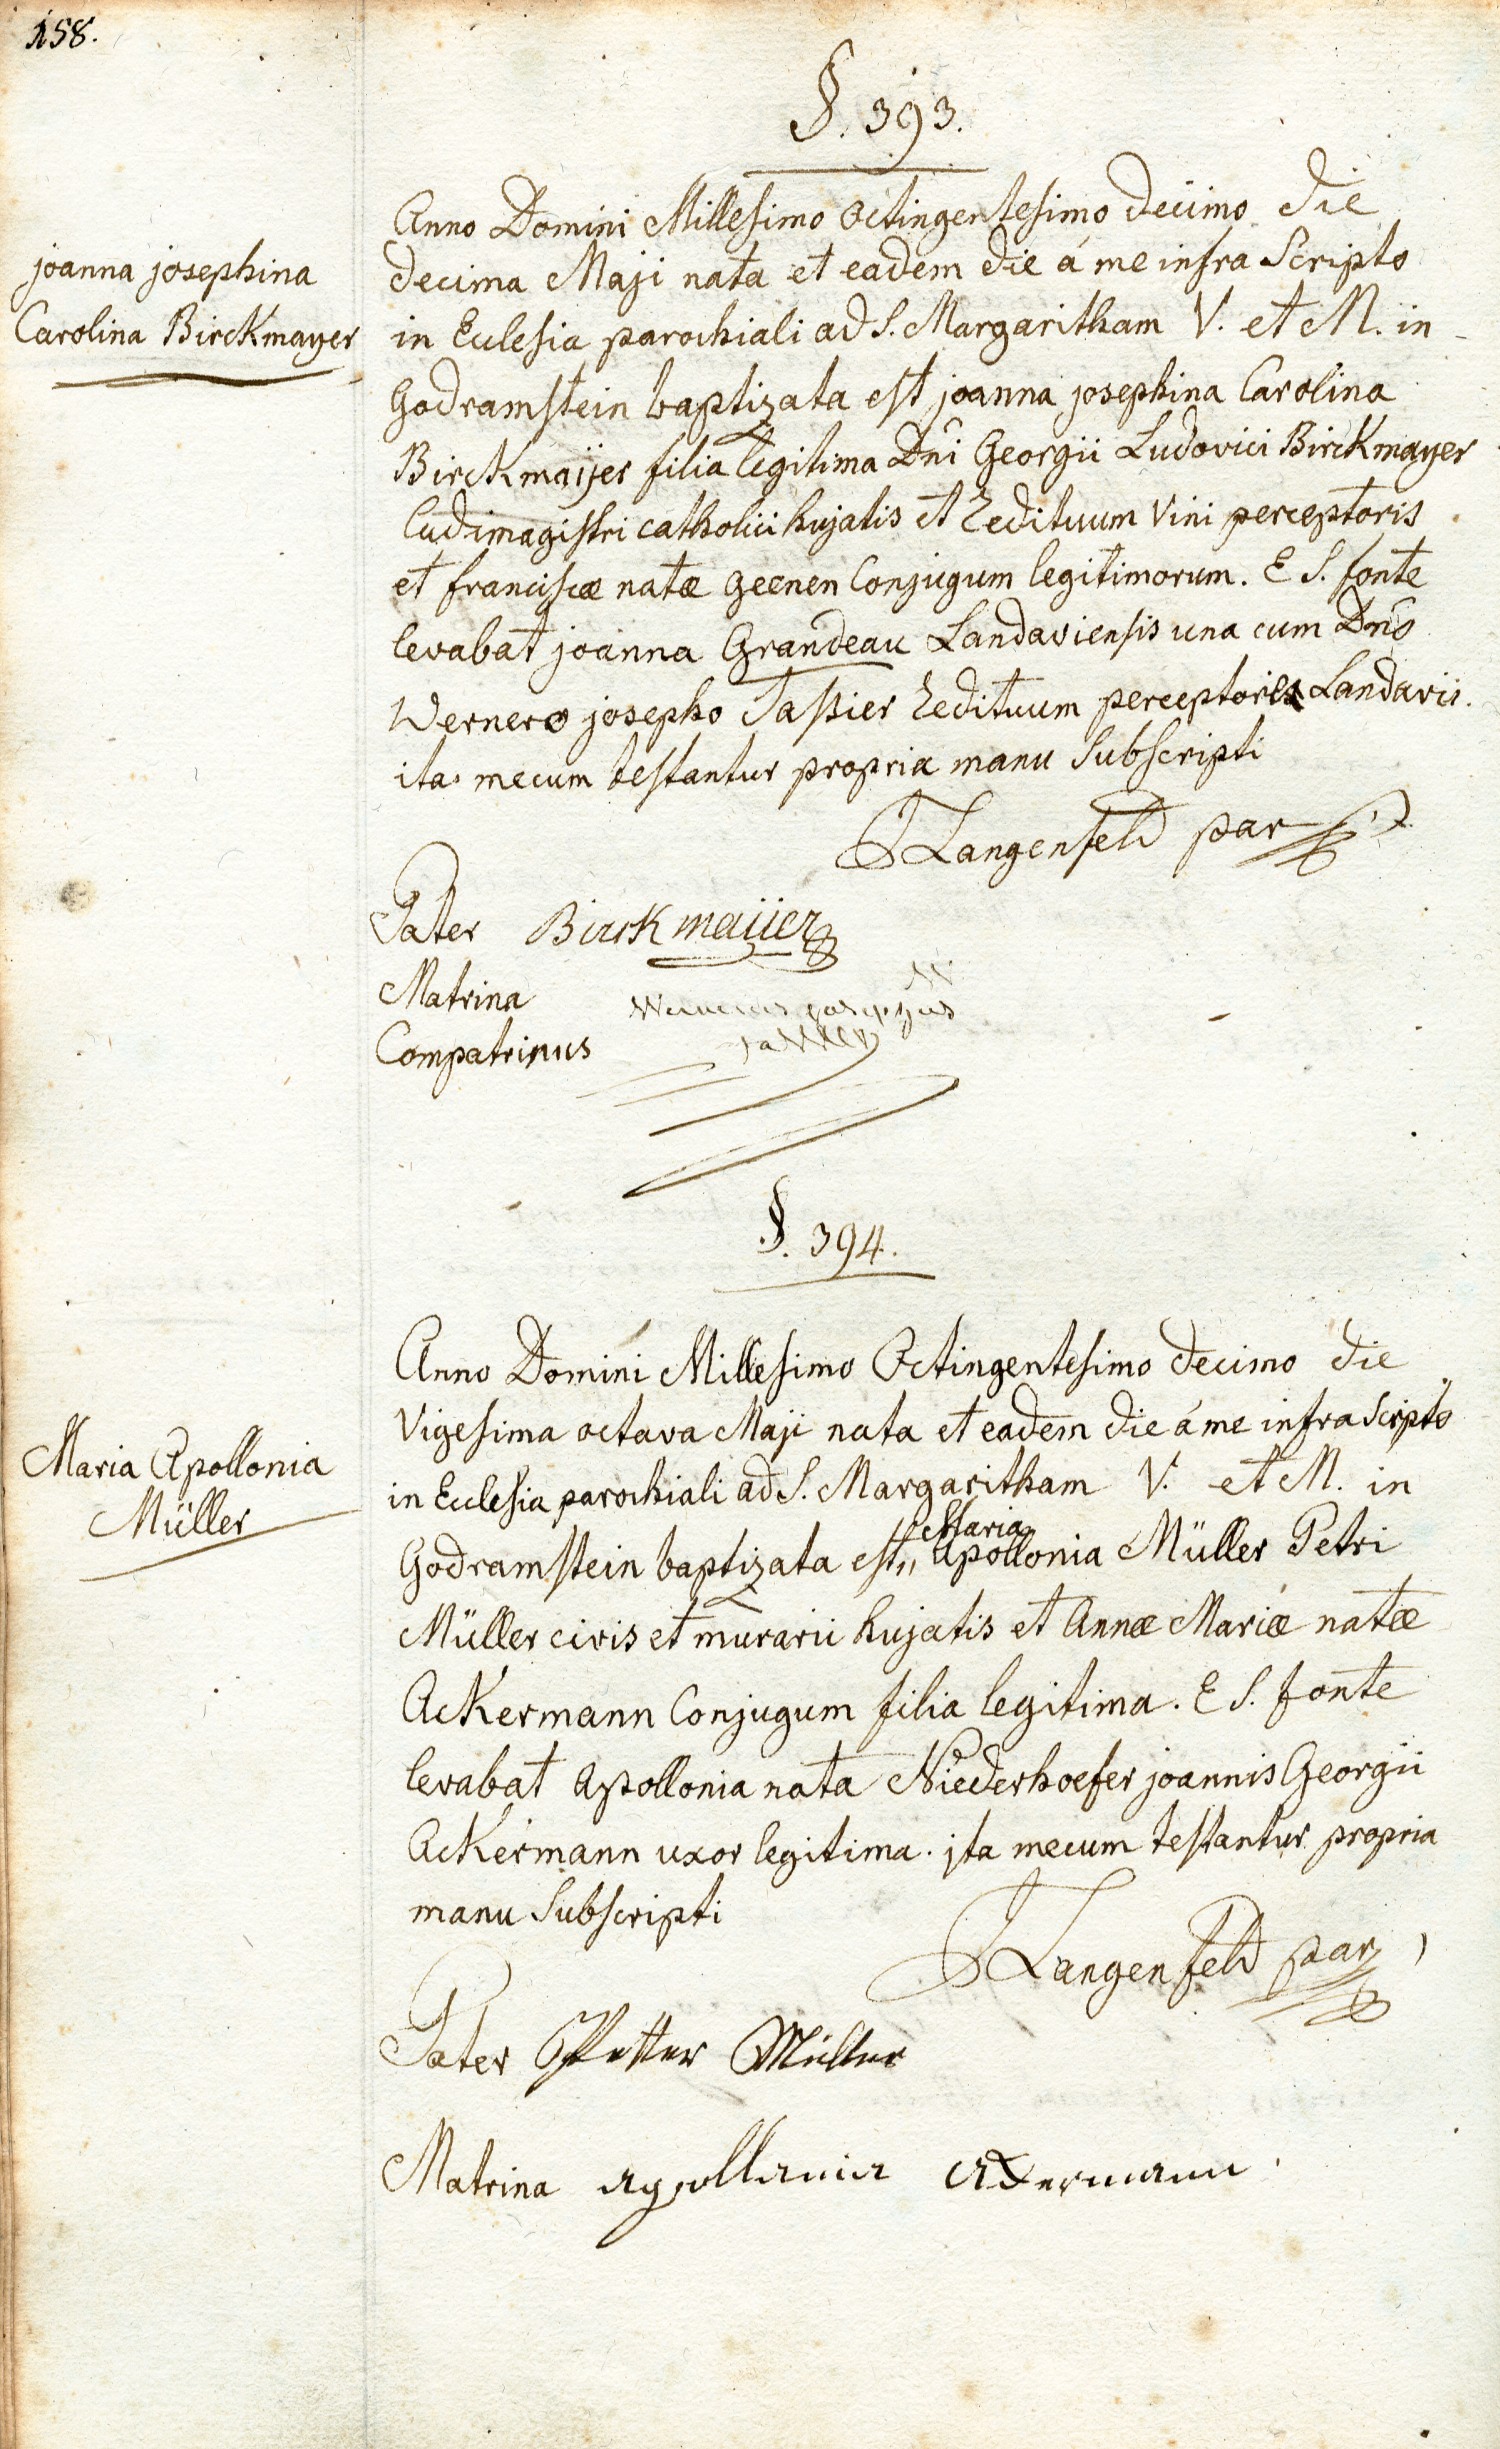 158.
§. 393.
joanna josephina
Carolina Birckmayer
Anno Domini Millesimo Octingentesimo decimo die
decima Maji nata et eadem die á me infra Scripto
in Ecclesia parochiali ad S. Margaritham V. et M. in
Godramstein baptizata est joanna josephina Carolina
Birckmaijer filia legitima Dni Georgii Ludovici Birckmayer
Ludimagistri catholici hujatis et Redituum Vini perceptoris
et franciscæ natæ Geenen Conjugum legitimorum. E S. fonte
levabat joanna Grandeau Landaviensis una cum Dno
Wernero josepho Tassier Redituum perceptoris Landavii.
ita mecum testantur propria manu Subscripti
J Langenfeld par
Pater Birckmaijer
Matrina
Compatrinus
§. 394.
Maria Apollonia
Müller
Anno Domini Millesimo Octingentesimo decimo die
Vigesima octava Maji nata et eadem die á me infra Scripto
in Ecclesia parochiali ad S. Margaritham V. et M. in
Maria
Godramstein baptizata est,, Apollonia Müller Petri
Müller civis et murarii hujatis et Annæ Mariæ natæ
Ackermann Conjugum filia legitima. E S. fonte
levabat Apollonia nata Niederhoefer joannis Georgii
Ackermann uxor legitima. jta mecum testantur propria
manu Subscripti
J Langenfeld par
Pater Petter Müller
Matrina apollania akermann